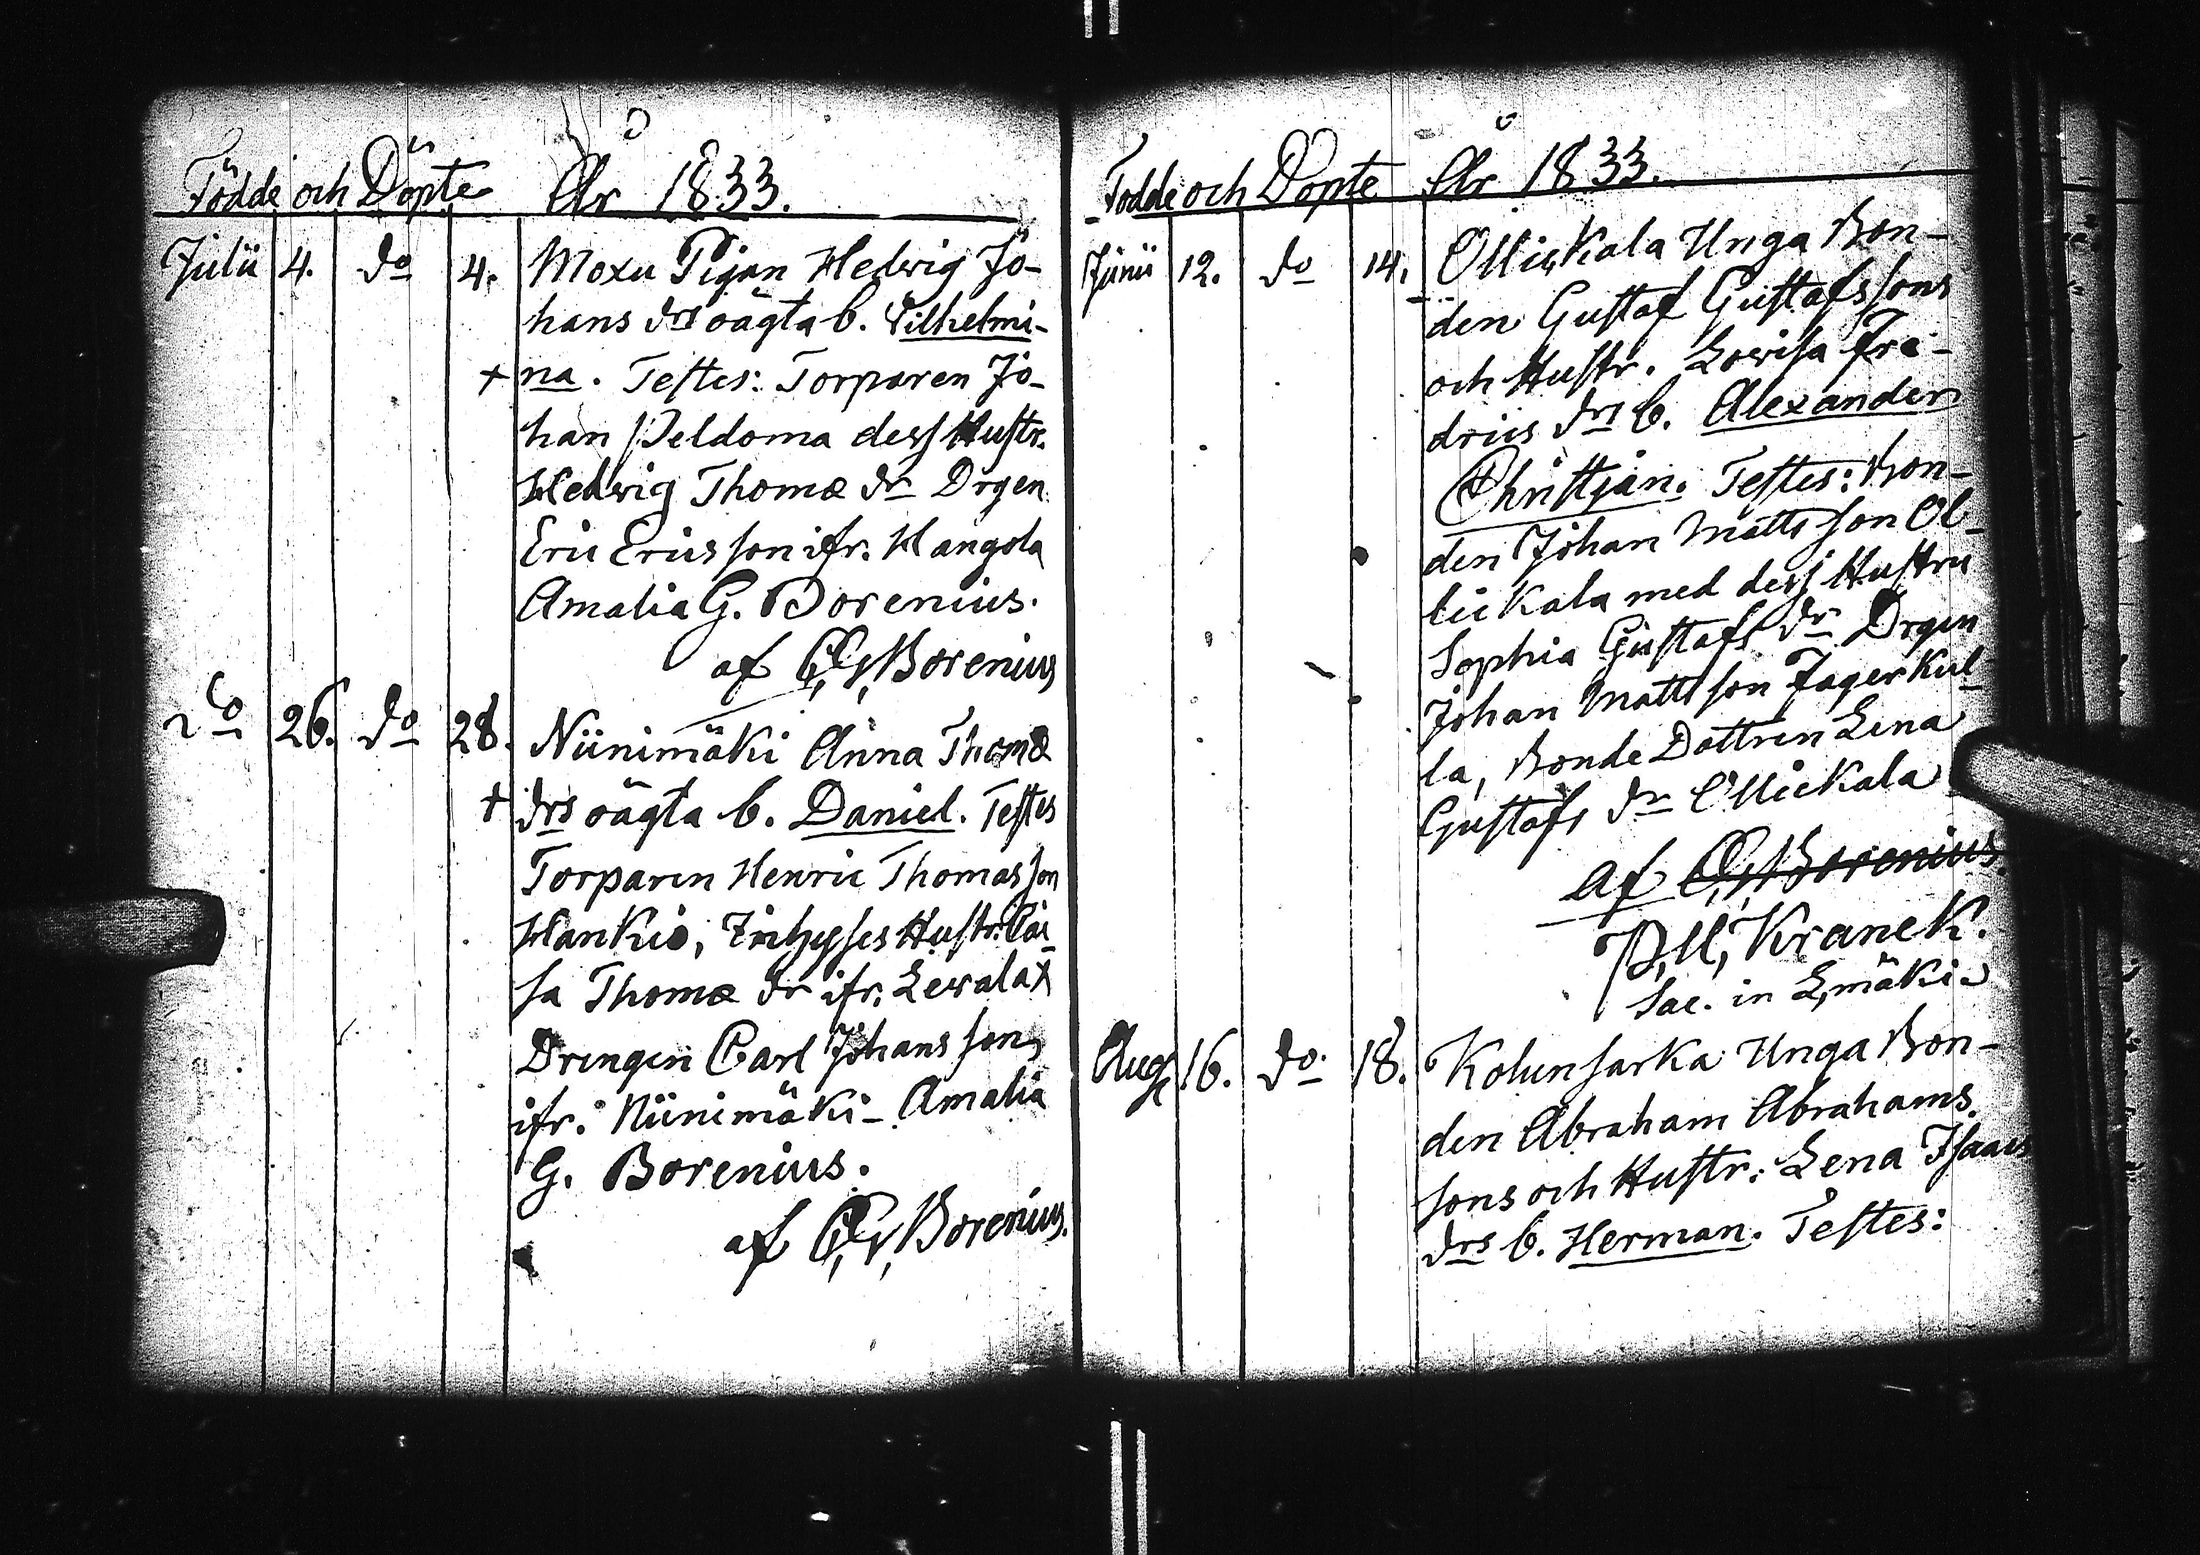 Födde och Döpte År 1833.
Julii 4. do 4. Moxu Pigan Hedvig Jo-
hans drs oägta b. Vilhelmi-
+ na. Testes: Torparen Jo-
han Peldoma dess Hustr.
Hedvig Thomæ dr Drgen
Eric Ericsson ifr. Hangola
Amalia G. Borenius.
af C, G, Borenius
do 26. do 28. Niinimäki Anna Thomæ
+ drs oägta b. Daniel. Testes
Torparen Henric Thomasson
Hankio, Hustr.
sa Thomæ dr ifr. Lewalax
Drengen Carl Johansson,
ifr. Niinimäki - Amalia
G. Borenius.
af C, G, Borenius.
Födde och Döpte År 1833.
Junii 12. do 14. Ollickala Unga Bon-
den Gustaf Gustafssons
och Hustr. Lovisa Fre-
drics drs b. Alexander
Christjan. Testes: Bon-
den Johan Mattsson Ol-
lickala med dess Hustru
Sophia Gustafs dr Drgen
Johan Mattsson Jagerkul-
la, Bonde Dottren Lena
Gustafs dr Ollickala
af C, G, Borenius.
P, U, Kranck.
Sac. in L,mäki
Aug 16. do 18. Kolunsarka Unga Bon-
den Abraham Abrahams.
sons och Hustr: Lena Isaacs
drs b. Herman. Testes: